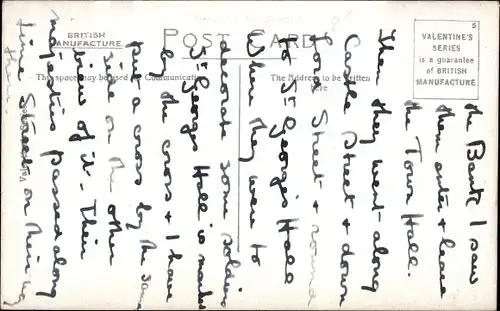 BRITISH
MANUFACTURE.
POST CARD
This space may be used for Communication
The Address to be written
Here
5
VALENTINE'S
SERIES
is a guarantee
of BRITISH
MANUFACTURE.
the Bank I saw
them enter & leave
the Town Hall.
Then they went along
Castle Street & down
Lord Street & round
to St George's Hall
where they were to
decorate some soldiers
St Georges Hall is marked
by the cross & I have
put a cross by the same
side on the other
view of it. Their
majesties passed along
Lime Street on their way
there.